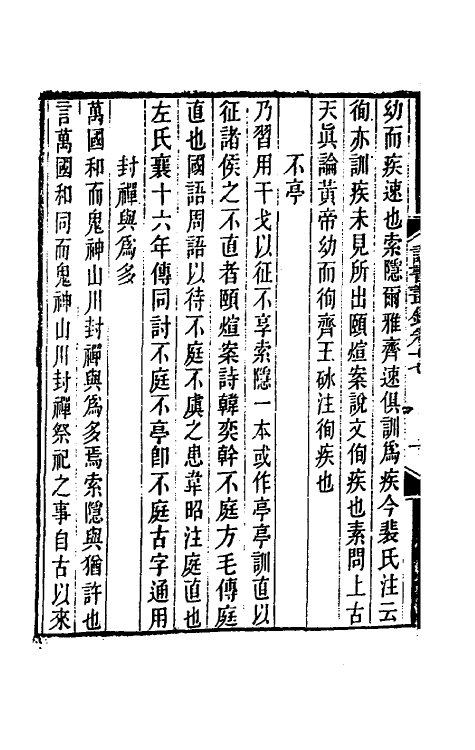 幼而疾速也索隱爾雅齊速俱訓爲疾今裴氏注云
徇亦訓疾未見所出頤煊案說文侚疾也素問上古
天眞論黃帝幼而徇齊王砅注徇疾也
不亭
乃習用干戈以征不享索隱一本或作亭亭訓直以
征諸侯之不直者頤煊案詩韓奕榦不庭方毛傳庭
直也國語周語以待不庭不虞之患韋昭注庭直也
左氏襄十六年傳同討不庭不亭卽不庭古字通用
封禪與爲多
萬國和而鬼神山川封禪與爲多焉索隱與猶許也
言萬國和同而鬼神山川封禪祭祀之事自古以來